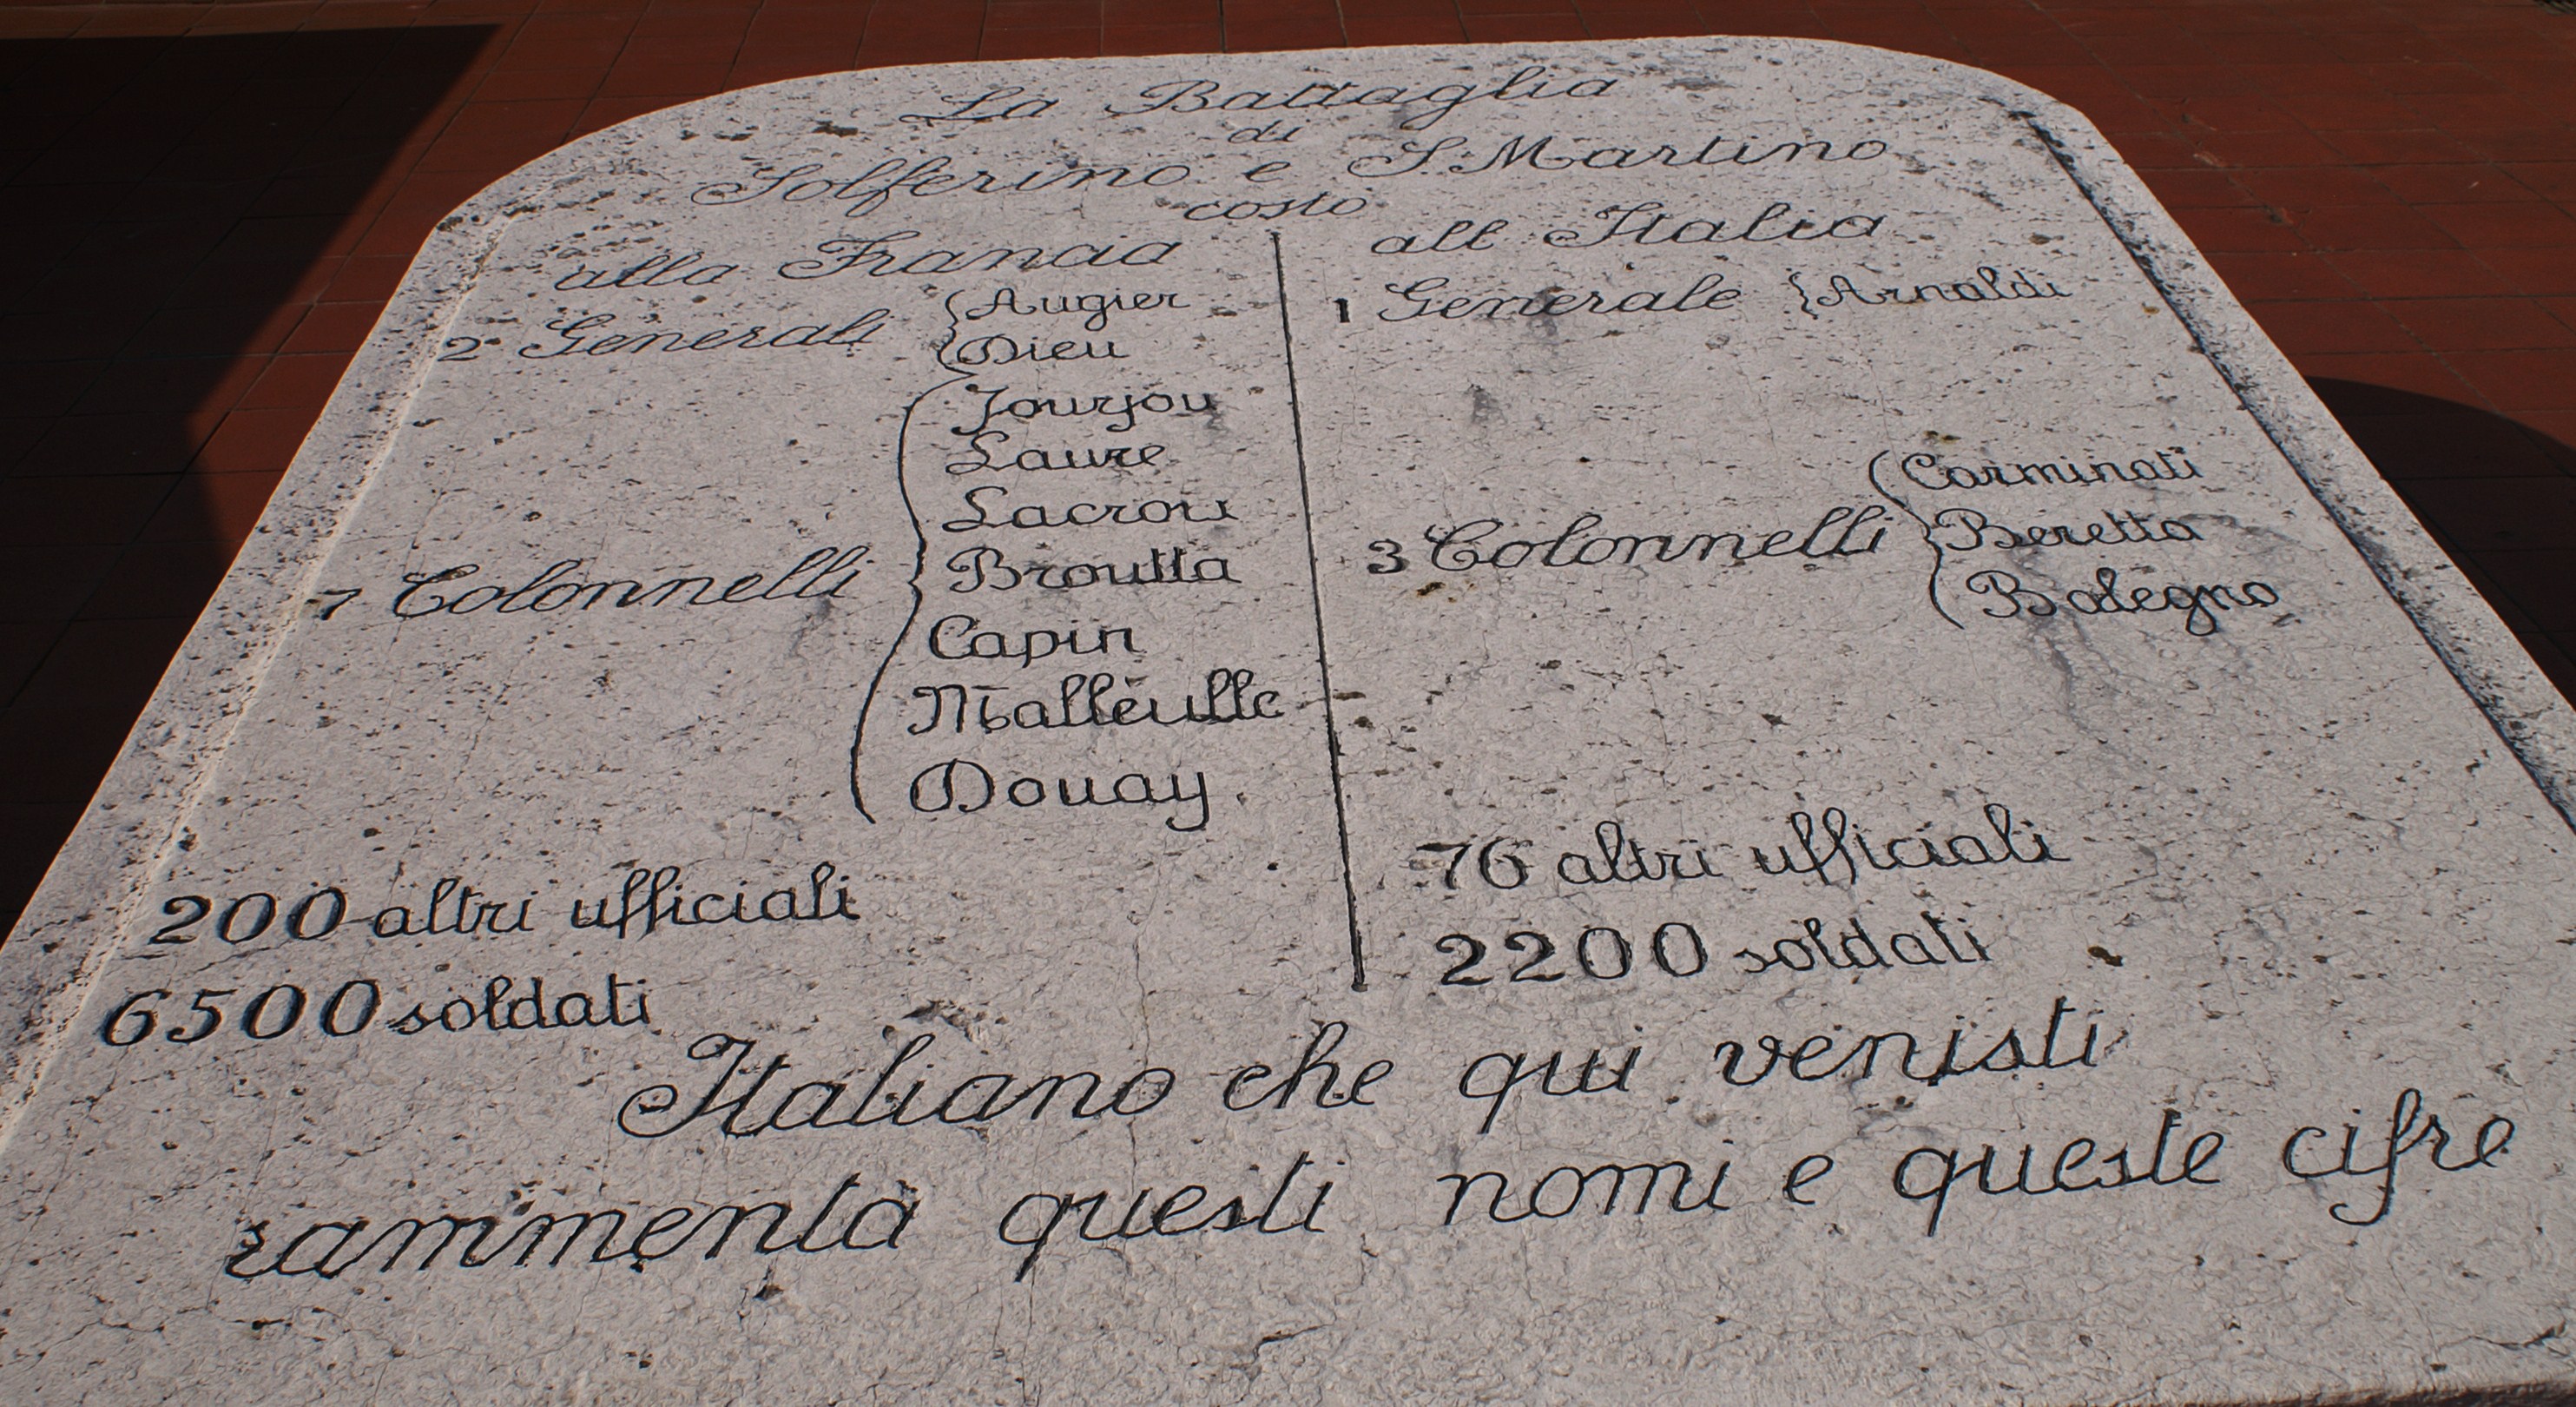 La Battaglia
di
Solferino e S. Martino
costò
alla Francia
2 Generali
Augier
Dieu
7 Colonnelli
Jourjou
Laure
Lacroix
Broutta
Capin
Malleville
Douay
200 altri ufficiali
6500 soldati
all Italia
1 Generale
Arnaldi
3 Colonnelli
Carminati
Beretta
Balegno
76 altri ufficiali
2200 soldati
Italiano che qui venisti
rammenta questi nomi e queste cifre